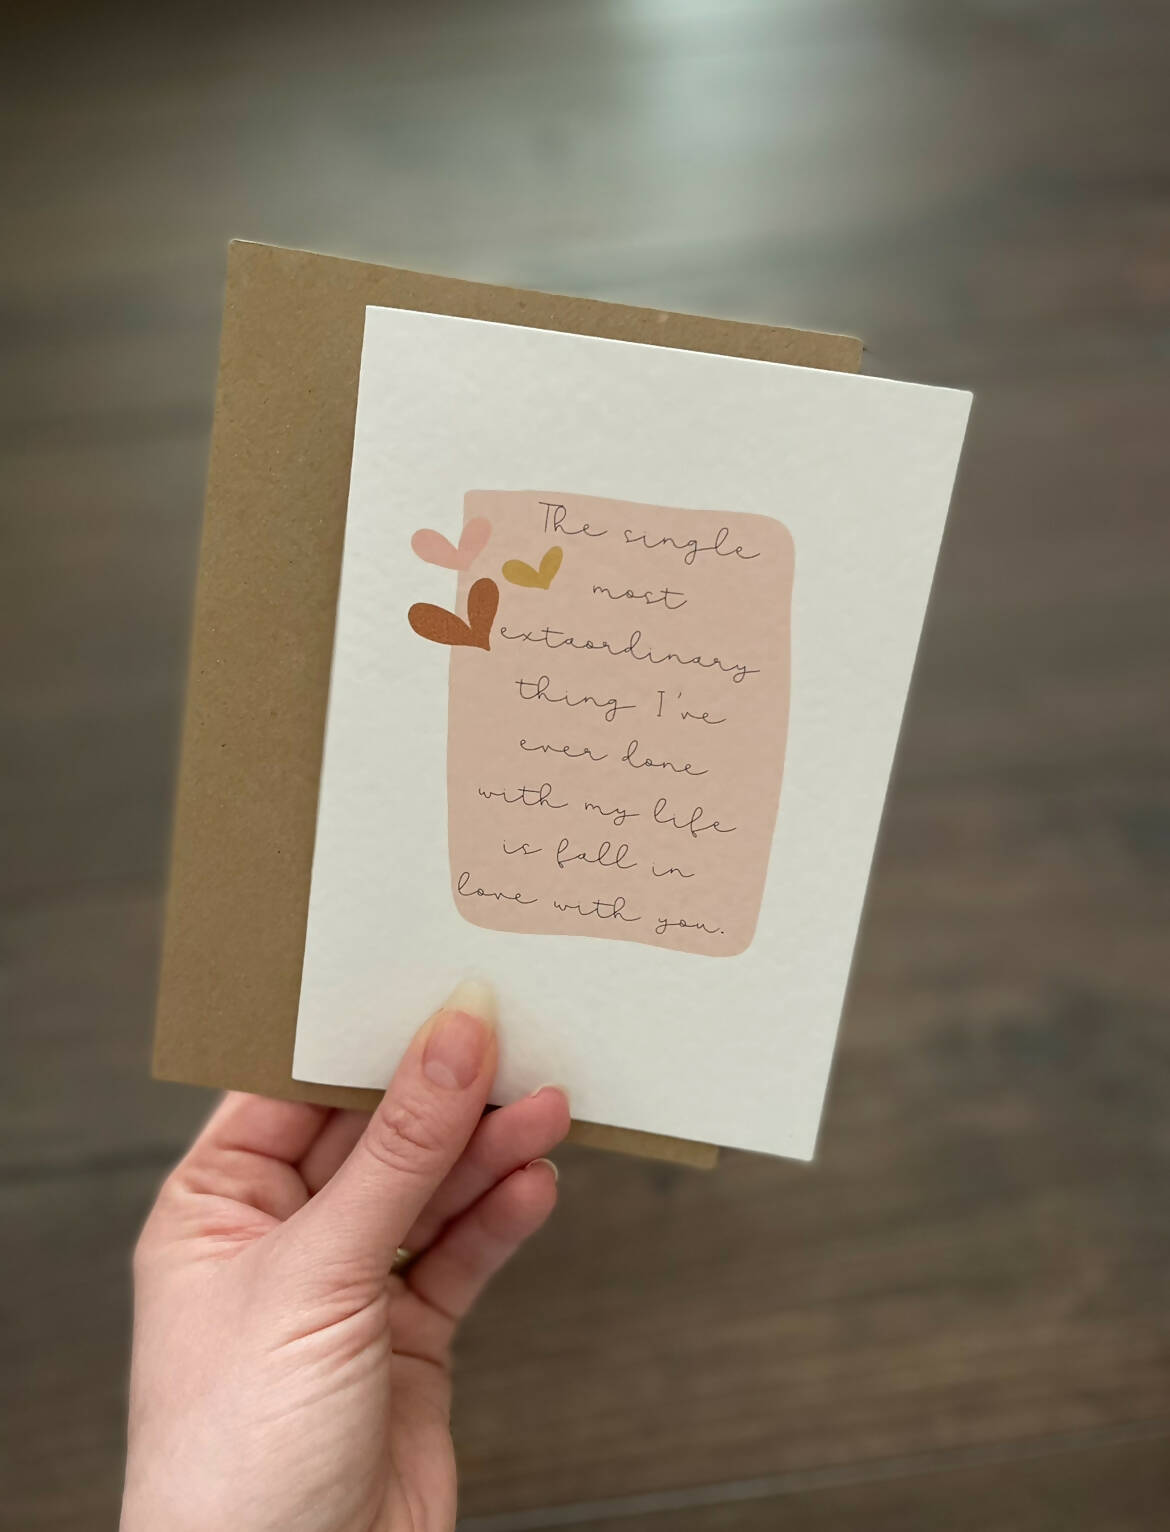 The single
most
extaordinary
thing I've
ever done
with my life
is fall in
love with you.